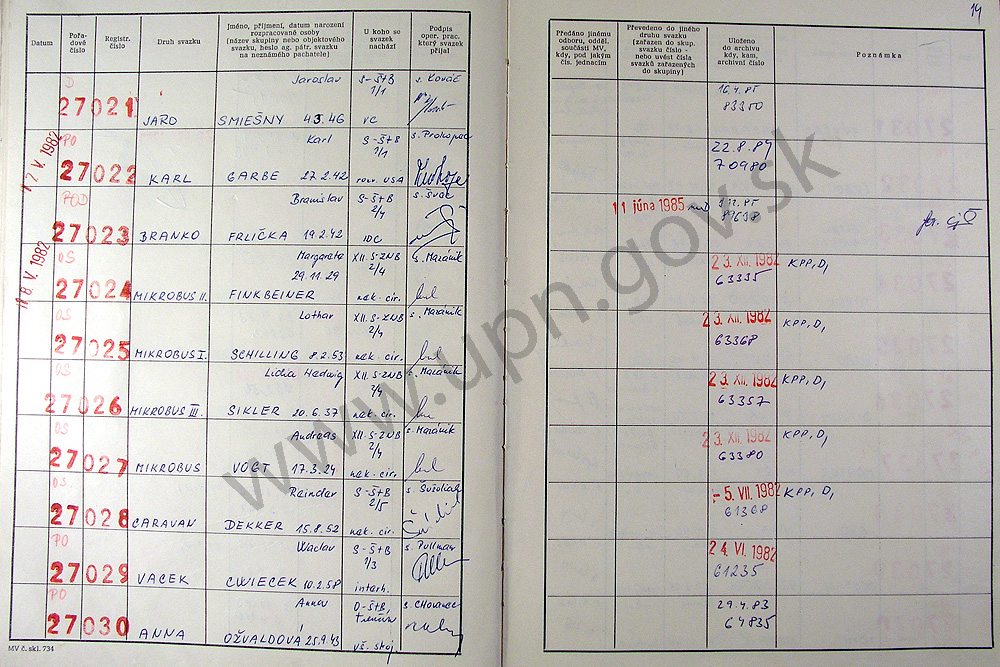 14
Datum
Pořadové číslo
Registr. číslo
Druh svazku
Jméno, příjmení, datum narození
rozpracované osoby
(název skupiny nebo objektového
svazku, heslo ag. pátr. svazku
na neznámého pachatele)
U koho se
svazek
nachází
Podpis
oper. prac.
který svazek
přijal
Předáno jinému
odboru, odděl.
součásti MV,
kdy, pod jakým
čís. jednacím
Převedeno do jiného
druhu svazku
(zařazen do skup.
svazku číslo -
nebo uvést čísla
svazků zařazených
do skupiny)
Uloženo
do archivu
kdy, kam,
archivní číslo
Poznámka
D
Jaroslav S-Š+B s. Kováč 16.4.85
27021 1/1 83350
JARO SMIEŠNY 4.3.46 VC
17. V. 1982
PO Karl S-Š+B s. Prokopac 22.8.84
27022 1/1 70980
KARL GARBE 27.2.42 USA
POD Branislav S-Š+B s. Švác 11 júna 1985
27023 2/4
BRANKO FRLIČKA 19.2.42 IDC
18. V. 1982
OS Margareta XII. S-ZNB s. Mazánik 23. XII. 1982 KPP, D,
27024 29.11.29 2/4 63335
MIKROBUS II. FINKBEINER nak. cir.
OS Lothar XII. S-ZNB s. Mazánik 23. XII. 1982 KPP, D,
27025 2/4 63368
MIKROBUS I. SCHILLING 8.2.53 nak. cir.
OS Hedwig XII. S-ZNB s. Mazánik 23. XII. 1982 KPP, D,
27026 2/4 63357
MIKROBUS III. SIKLER 20.6.37 nak. cir.
OS Andreas XII. S-ZNB s. Mazánik 23. XII. 1982 KPP, D,
27027 2/4 63380
MIKROBUS VOGT 17.3.24 nak. cir.
OS Reinder S-Š+B - 5. VII. 1982 KPP, D,
27028 2/5 61368
CARAVAN DEKKER 15.8.52 nak. cir.
PO Waclav S-Š+B s. Pullman 24. VI. 1982
27029 1/3 61235
VACEK CWIECEK 10.2.58 interh.
PO Anna O-Š+B, s. Chovanec 29.4.83
27030 Trenčín 64835
ANNA OŽVALDOVÁ 25.9.43 vš. skoj.
MV č. skl. 734
www.upn.gov.sk